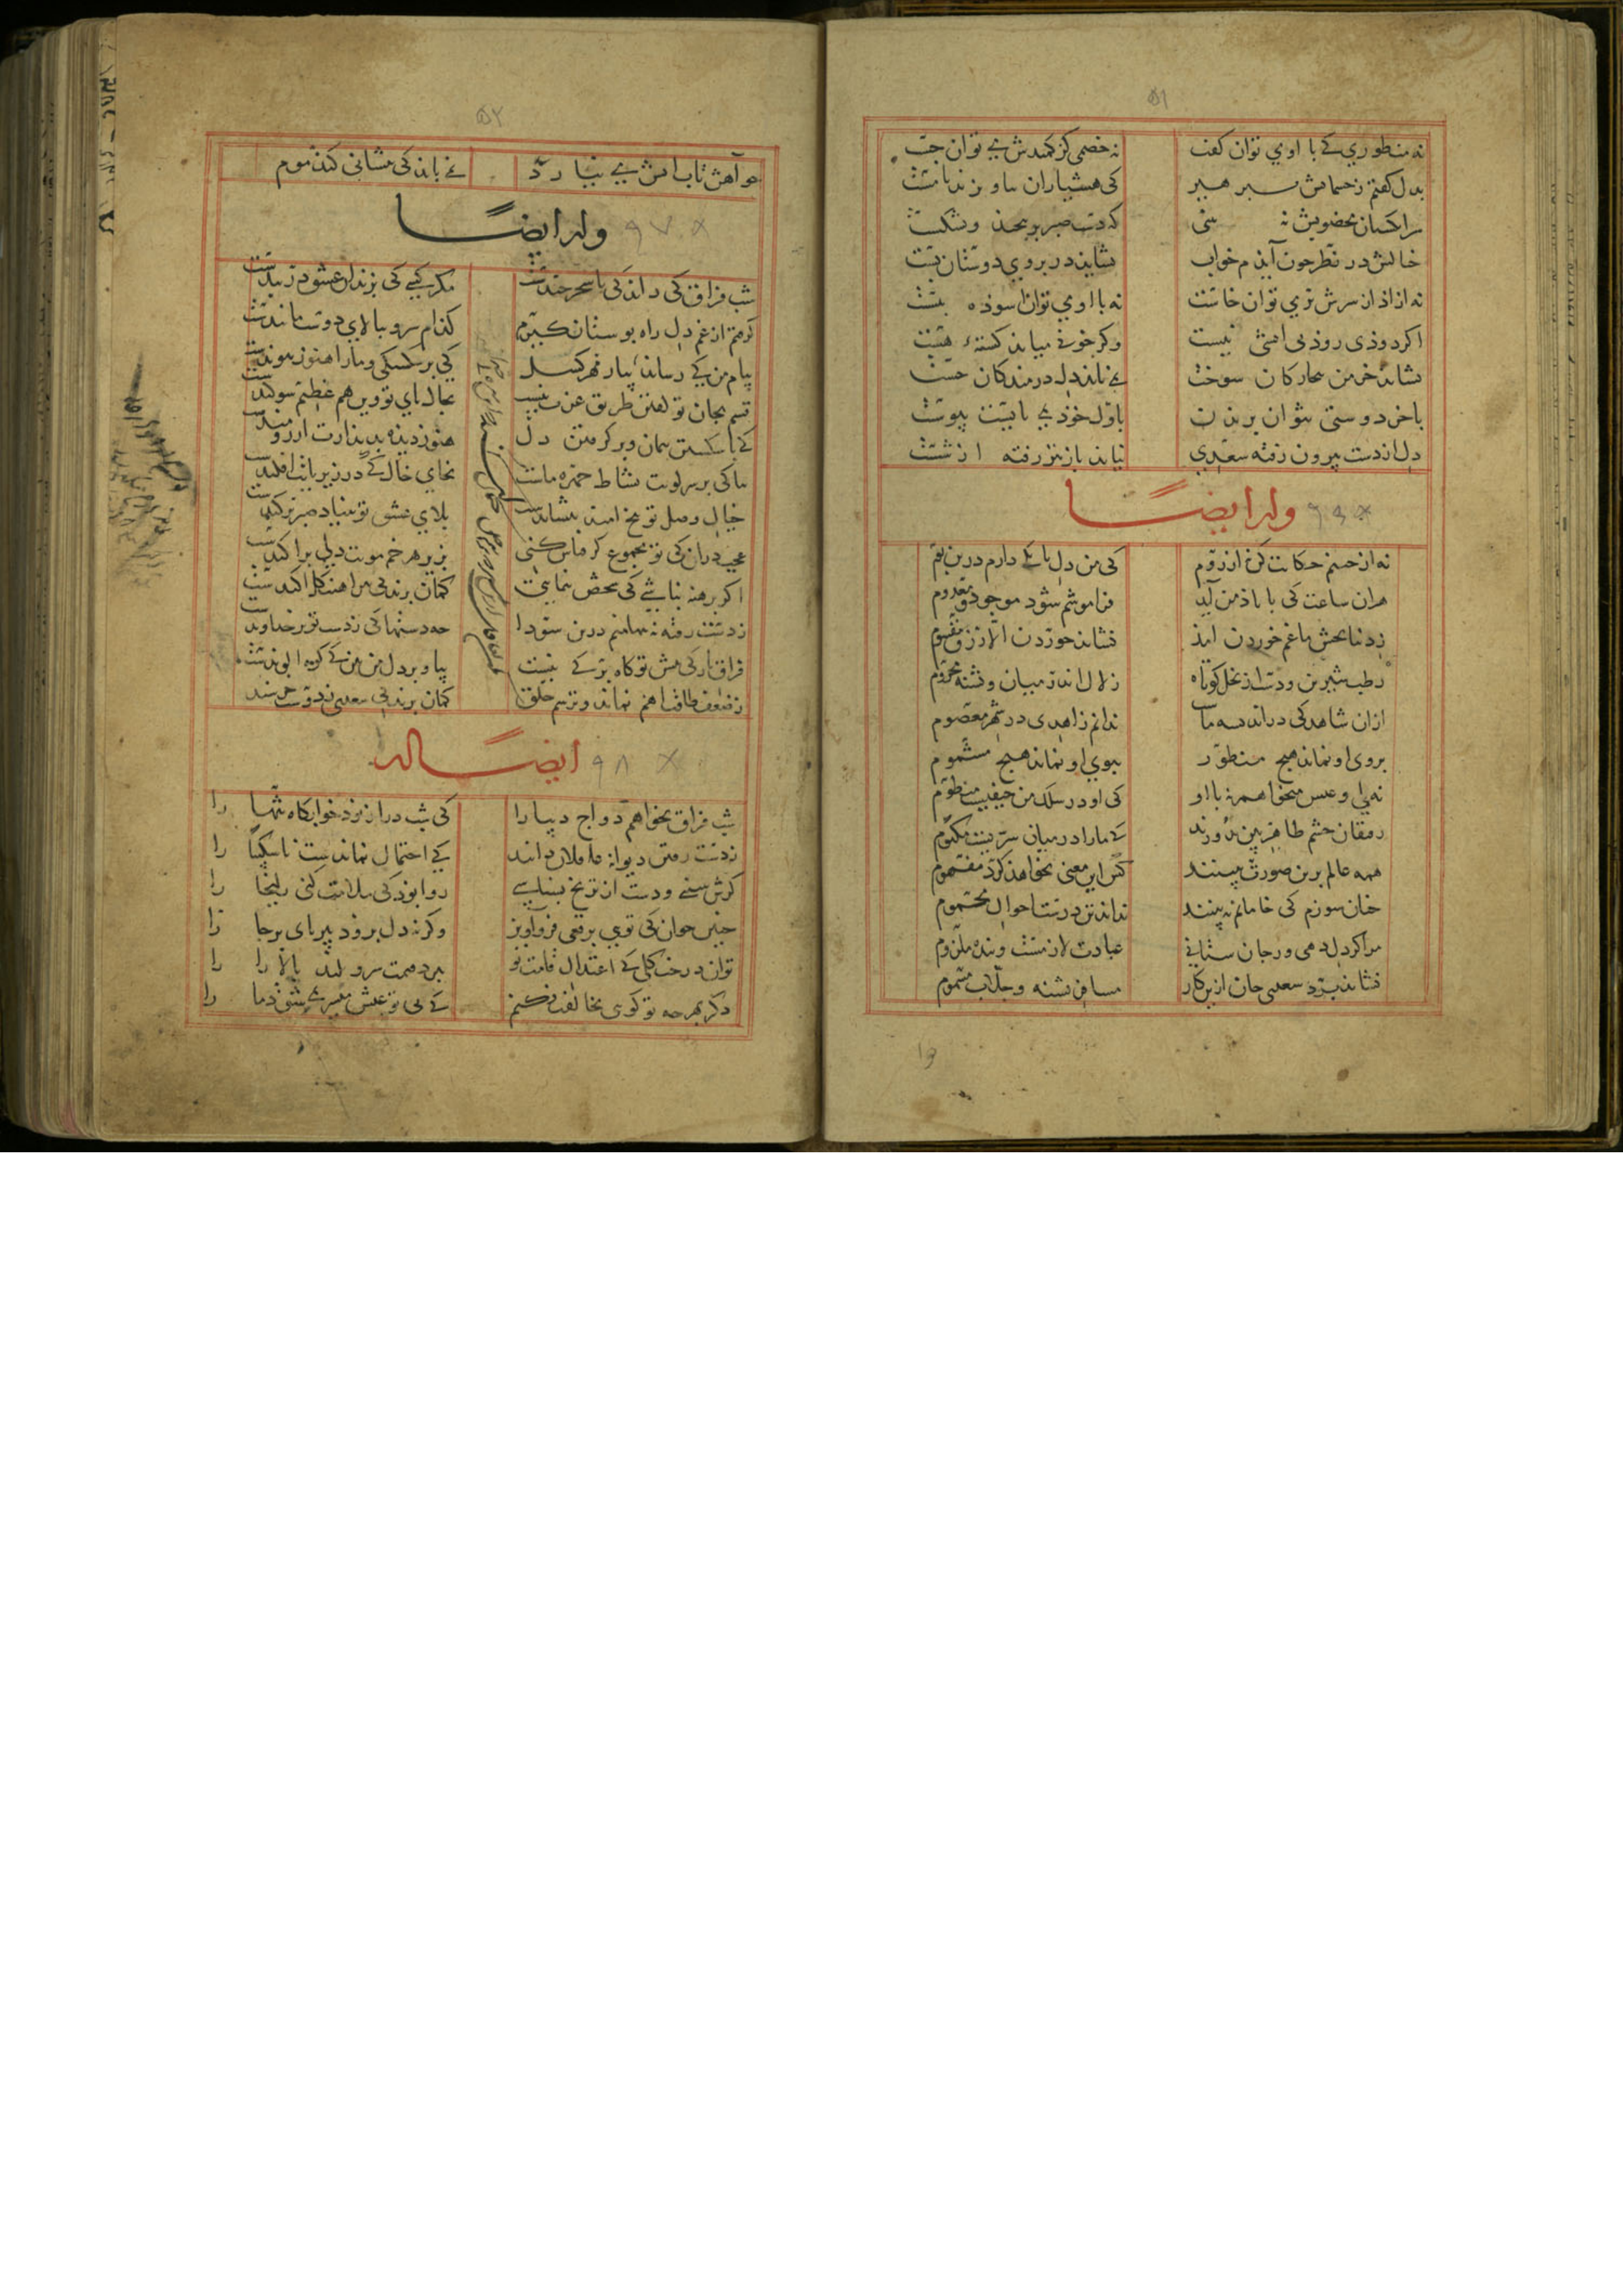 ۵۱
نه منظوری کی با اوی توان گفت نه خصمی کز کمندش می توان جست
بدل گفتم ز چشمانش بپرهیز کی هشیاران نیاویزند با مست
سرانگشتان مخضوبش نه بینی که دست صبر برپیچید و بشکست
نه ازاد از سرش بری توان خاست نه با اوی توان اسوده بنشست
اگر دودی رود بی اتشی نیست وگر خونی بیاید کشته هست
خیالش در نظر چون آیدم خواب نشاید در بروی دوستان بست
نشاید خرمن بیچارگان سوخت نمی باید دل درمندگان خست
باخر دوستی نتوان بریدن باول خود نمی بایست پیوست
دل از دست بیرون رفته سعدی نیاید باز تیر رفته از شست
وله ایضا ۹۶
نه از چینم حکایت کن نه از روم کی من دل با یکی دارم درین بوم
هر ان ساعت کی با یاد من آید فراموشم شود موجود و معدوم
ز دنیا بخش ما غم خوردن امد نشاید خوردن الا رزق مقسوم
رطب شیرین و دست از نخل کوتاه زلال اندر میان و تشنه محروم
از ان شاهد کی در اندیشه ماست ندانم زاهدی در شهر معصوم
بروی او نماند هیچ منظور ببوی او نماند هیچ مشموم
نه بی او عیش میخواهم نه با او کی او در سلک من حیفیست منظوم
رفیقان چشم ظاهربین بدوزند کی ما را در میان سریست مکتوم
همه عالم برین صورت ببینند کس این معنی نخواهد کرد مفهوم
چنان سوزم کی خامانم نبینند نداند تن درست احوال محموم
مرا گر دل دهی ور جان ستانی عبادت لازمست و بنده ملزوم
نشاید برد سعدی جان ازین کار مسافر تشنه و جلاب مسموم
۵۲
چو آهن تاب اتش می نیارد نمی باید کی پیشانی کند موم
وله ایضا ۹۷
شب فراق کی داند کی تا سحر چندست مگر کسی کی بزندان عشق در بندست
گرفتم از غم دل راه بوستان گیرم کدام سرو ببالای دوست مانندست
پیام من کی رساند بیار مهرگسل کی برشکستی و ما را هنوز پیوندست
قسم بجان تو گفتن طریق عزت نیست بخاک پای تو وین هم عظیم سوگندست
کی با شکستن پیمان و برگرفتن دل هنوز دیده بدیدارت ارزومندست
بیا کی بر سر کویت بساط چهره ماست بجای خاک کی در زیر پایت افکندست
خیال وصل تو بیخ امید بنشاندست بلای عشق تو بنیاد صبر برکندست
عجب در ان کی تو مجموع گر قیاس کنی بزیر هر خم مویت دلی پراکندست
اگر برهنه نباشی کی شخص بنمایی گمان برند کی پیراهنت گل اکندست
ز دست رفته نه تنها منم درین سودا چه دستها کی ز دست تو بر خداوندست
فراق یار کی پیش تو کاه برگی نیست بیا و بر دل من بین کی کوه الوندست
ز ضعف طاقت اهم نماند و ترسم خلق گمان برند کی سعدی ز دوست خرسندست
ایضا له ۹۸
شب فراق نخواهم دواج دیبا را کی شب دراز بود خوابگاه تنها را
ز دست رفتن دیوانه عاقلان دانند کی احتمال نماندست ناشکیبا را
گرش ببینی و دست از ترنج بشناسی روا بود کی ملامت کنی زلیخا را
چنین جوان کی توی برقعی فرواویز وگرنه دل برود پیر پای برجا را
تو ان درخت گلی کی اعتدال قامت تو ببرد قیمت سرو بلند بالا را
دگر بهرچه تو گوی مخالفت نکنم کی بی تو عیش میسر نمی شود ما را